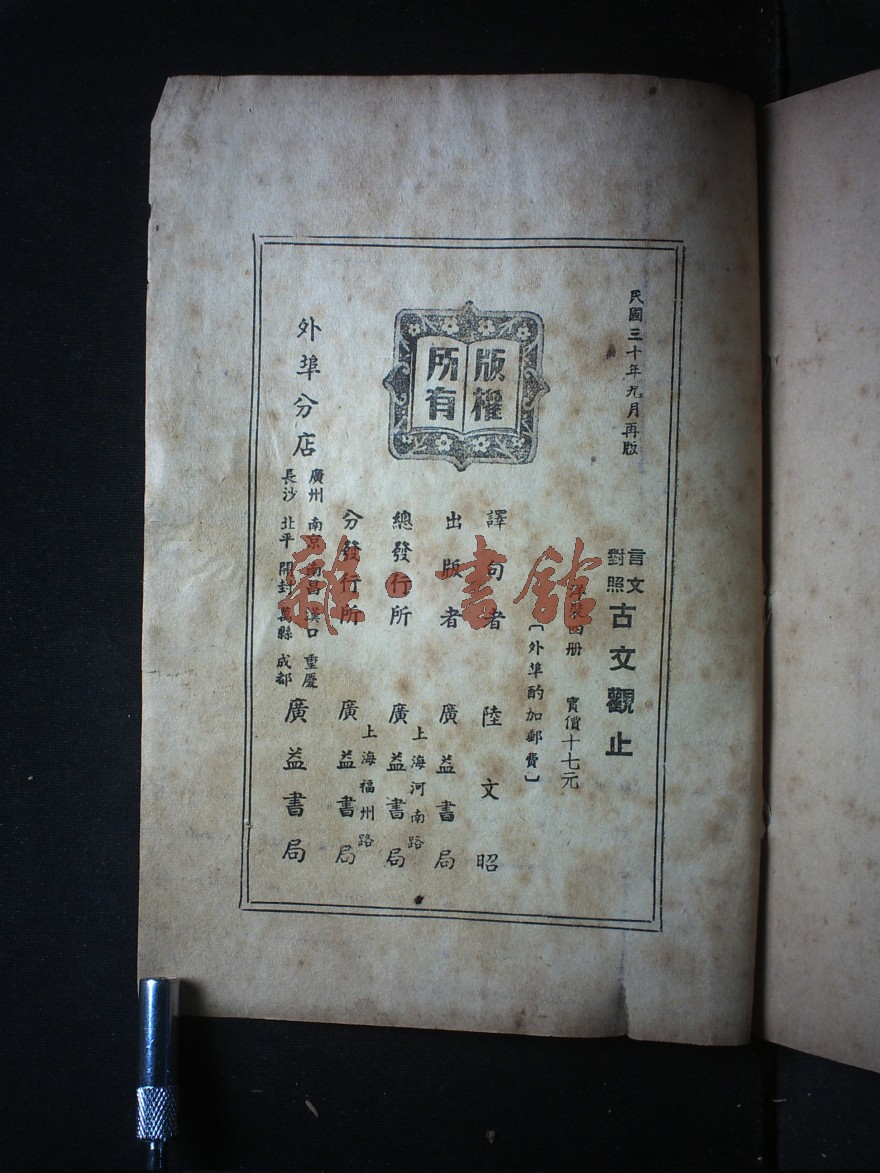 民國三十年九月再版
言文
對照
古文觀止
洋裝四册 實價十七元
〔外埠酌加郵費〕
版權
所有
譯句者 陸文昭
出版者 廣益書局
總發行所 上海河南路 廣益書局
分發行所 上海福州路 廣益書局
外埠分店 廣州 南京 南昌 漢口 重慶
長沙 北平 開封 萬縣 成都
廣益書局
雜·書館